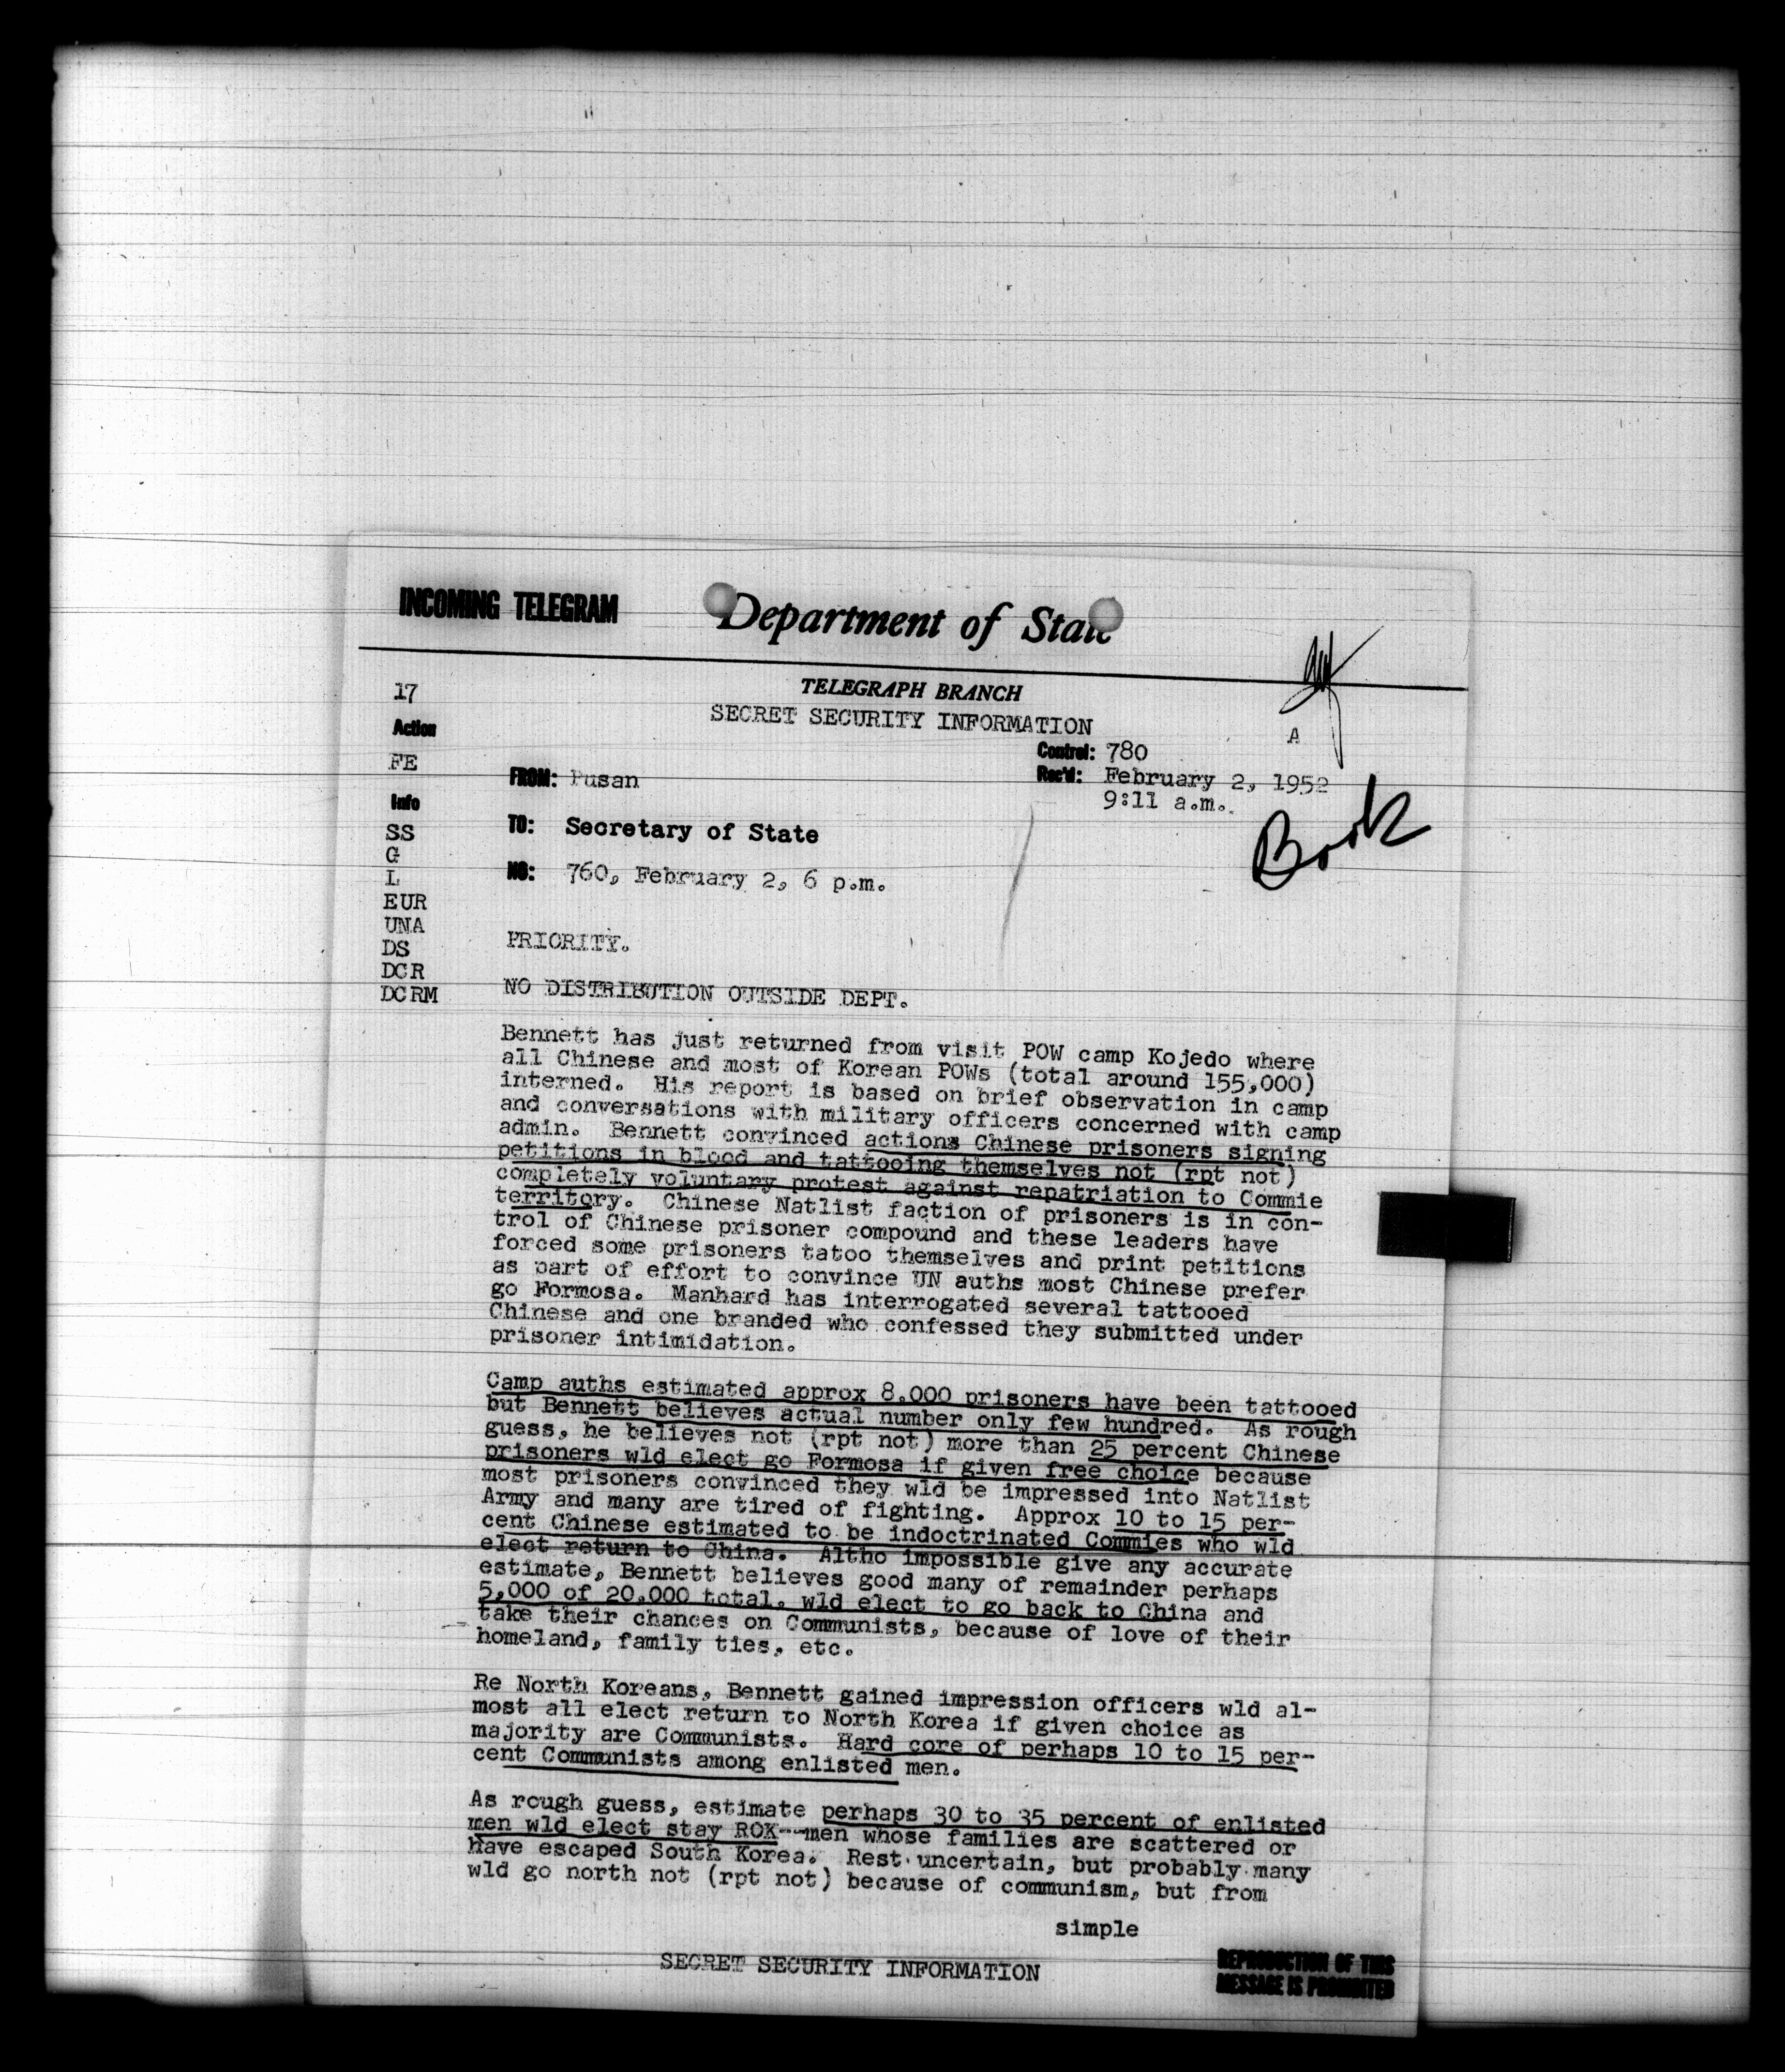 INCOMING TELEGRAM Department of State
TELEGRAPH BRANCH
SECRET SECURITY INFORMATION
17
Action
FE
Info
SS
G
L
EUR
UNA
DS
DCR
DCRM
A
Control: 780
Rec'd: February 2, 1952
9:11 a.m.
FROM: Pusan
TO: Secretary of State
NO: 760, February 2, 6 p.m.
Book
PRIORITY.
NO DISTRIBUTION OUTSIDE DEPT.
Bennett has just returned from visit POW camp Kojedo where
all Chinese and most of Korean POWs (total around 155,000)
interned. His report is based on brief observation in camp
and conversations with military officers concerned with camp
admin. Bennett convinced actions Chinese prisoners signing
petitions in blood and tattooing themselves not (rpt not)
completely voluntary protest against repatriation to Commie
territory. Chinese Natlist faction of prisoners is in con-
trol of Chinese prisoner compound and these leaders have
forced some prisoners tatoo themselves and print petitions
as part of effort to convince UN auths most Chinese prefer
go Formosa. Manhard has interrogated several tattooed
Chinese and one branded who confessed they submitted under
prisoner intimidation.
Camp auths estimated approx 8,000 prisoners have been tattooed
but Bennett believes actual number only few hundred. As rough
guess, he believes not (rpt not) more than 25 percent Chinese
prisoners wld elect go Formosa if given free choice because
most prisoners convinced they wld be impressed into Natlist
Army and many are tired of fighting. Approx 10 to 15 per-
cent Chinese estimated to be indoctrinated Commies who wld
elect return to China. Altho impossible give any accurate
estimate, Bennett believes good many of remainder perhaps
5,000 of 20,000 total, wld elect to go back to China and
take their chances on Communists, because of love of their
homeland, family ties, etc.
Re North Koreans, Bennett gained impression officers wld al-
most all elect return to North Korea if given choice as
majority are Communists. Hard core of perhaps 10 to 15 per-
cent Communists among enlisted men.
As rough guess, estimate perhaps 30 to 35 percent of enlisted
men wld elect stay ROK--men whose families are scattered or
have escaped South Korea. Rest uncertain, but probably many
wld go north not (rpt not) because of communism, but from
simple
SECRET SECURITY INFORMATION
REPRODUCTION OF THIS
MESSAGE IS PROHIBITED